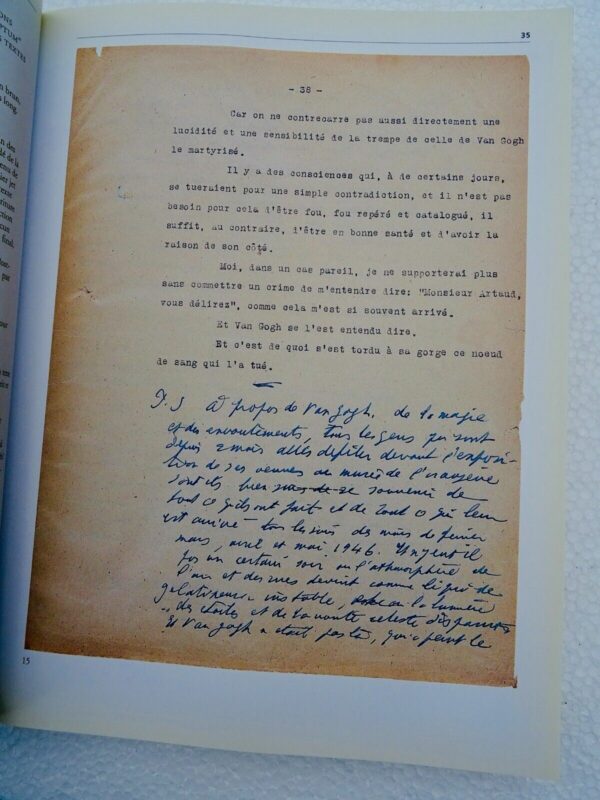 ONS
PTUM"
S TEXTES
n brun.
s long.
35
- 38 -
Car on ne contrecarre pas aussi directement une
lucidité et une sensibilité de la trempe de celle de Van Gogh
le martyrisé.
Il y a des consciences qui, à de certains jours,
se tueraient pour une simple contradiction, et il n'est pas
besoin pour cela d'être fou, fou repéré et catalogué, il
suffit, au contraire, d'être en bonne santé et d'avoir la
raison de son côté.
Moi, dans un cas pareil, je ne supporterai plus
sans commettre un crime de m'entendre dire: "Monsieur Artaud,
vous délirez", comme cela m'est si souvent arrivé.
Et Van Gogh se l'est entendu dire.
Et c'est de quoi s'est tordu à sa gorge ce noeud
de sang qui l'a tué.
P.S A propos de Van Gogh, de la magie
et des envoutements, tous les gens qui sont
depuis 2 mois allés défiler devant l'exposi-
tion de ses œuvres au musée de l'orangerie
sont ils bien se souvenir de
tout ce qu'ils ont fait et de tout ce qui leur
est arrivé tous les soirs des mois de février
mars, avril et mai 1946. N'y eut il
pas un certain soir où l'athmosphère de
l'air et des rues devint comme liquide
gélatineuse instable, la lumière
des étoiles et de la voute céleste disparut
Et Van Gogh n'était pas là, qui a peint le
15